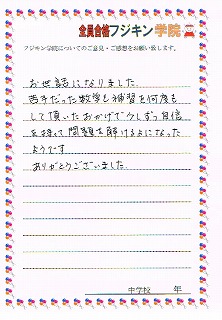 全員合格フジキン学院
フジキン学院についてのご意見・ご感想をお願い致します。
お世話になりました。
苦手だった数学も補習を何度も
して頂いたおかげで少しずつ自信
を持って問題を解けるよになった
ようです
ありがとうございました
中学校 年